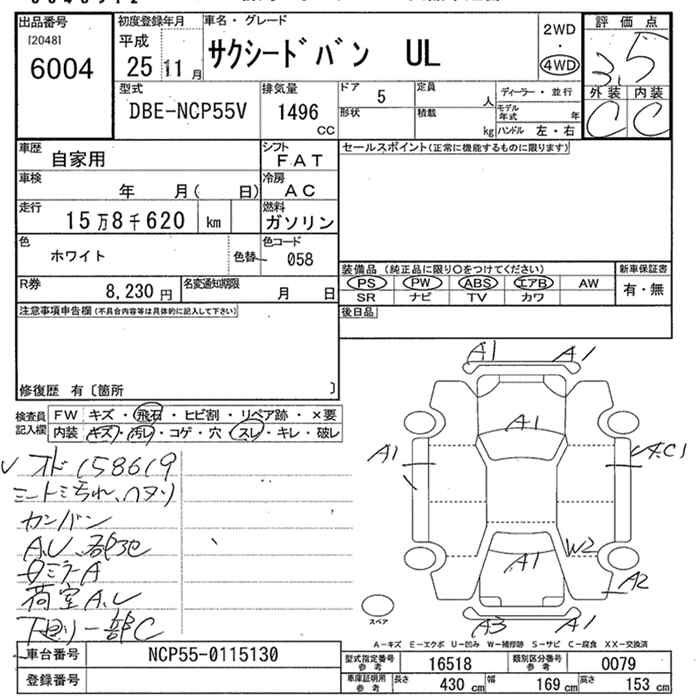 出品番号
[2048]
6004
初度登録年月
平成
25年11月
車名・グレード
サクシードバン UL
2WD
・
4WD
評価点
3.5
外装 内装
C C
型式
DBE-NCP55V
排気量
1496
CC
ドア 5
形状
定員 人
積載 kg
ディーラー・並行
モデル年式 年
ハンドル 左・右
車歴
自家用
シフト
FAT
車検
年 月( 日)
冷房
AC
走行
15万8千620 km
燃料
ガソリン
色
ホワイト
色替
色コード
058
R券
8,230円
名変通知期限
月 日
セールスポイント(正常に機能するものに限ります)
装備品(純正品に限り○をつけてください)
PS PW ABS エアB AW
SR ナビ TV カワ
新車保証書
有・無
後日品
注意事項申告欄(不具合内容等は具体的に記入して下さい)
修復歴 有〔箇所 〕
検査員
記入欄
FW キズ・飛石・ヒビ割・リペア跡・×要
内装 キズ・汚レ・コゲ・穴・スレ・キレ・破レ
オド158619
カンバン
荷室A,U
下回り一部C
A1 A1
A1
A1
A1
W2
A2
A3 A1
スペア
A-キズ E-エクボ U-凹み W-補修跡 S-サビ C-腐食 XX-交換済
車台番号 NCP55-0115130
登録番号
型式指定番号
参考
16518
類別区分番号
参考
0079
車庫証明用
参考
長さ 430 cm 幅 169 cm 高さ 153 cm